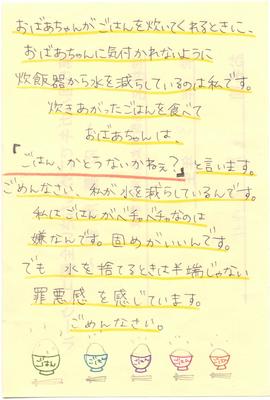 おばあちゃんがごはんを炊いてくれるときに、
おばあちゃんに気付かれないように
炊飯器から水を減らしているのは私です。
炊きあがったごはんを食べて
おばあちゃんは、
「ごはん、かとうないかねぇ?」と言います。
ごめんなさい、私が水を減らしているんです。
私はごはんがベチャベチャなのは
嫌なんです。固めがいいんです。
でも 水を捨てるときは半端じゃない
罪悪感を感じています。
ごめんなさい。
ごはん ごはん ごはん ごはん ごはん